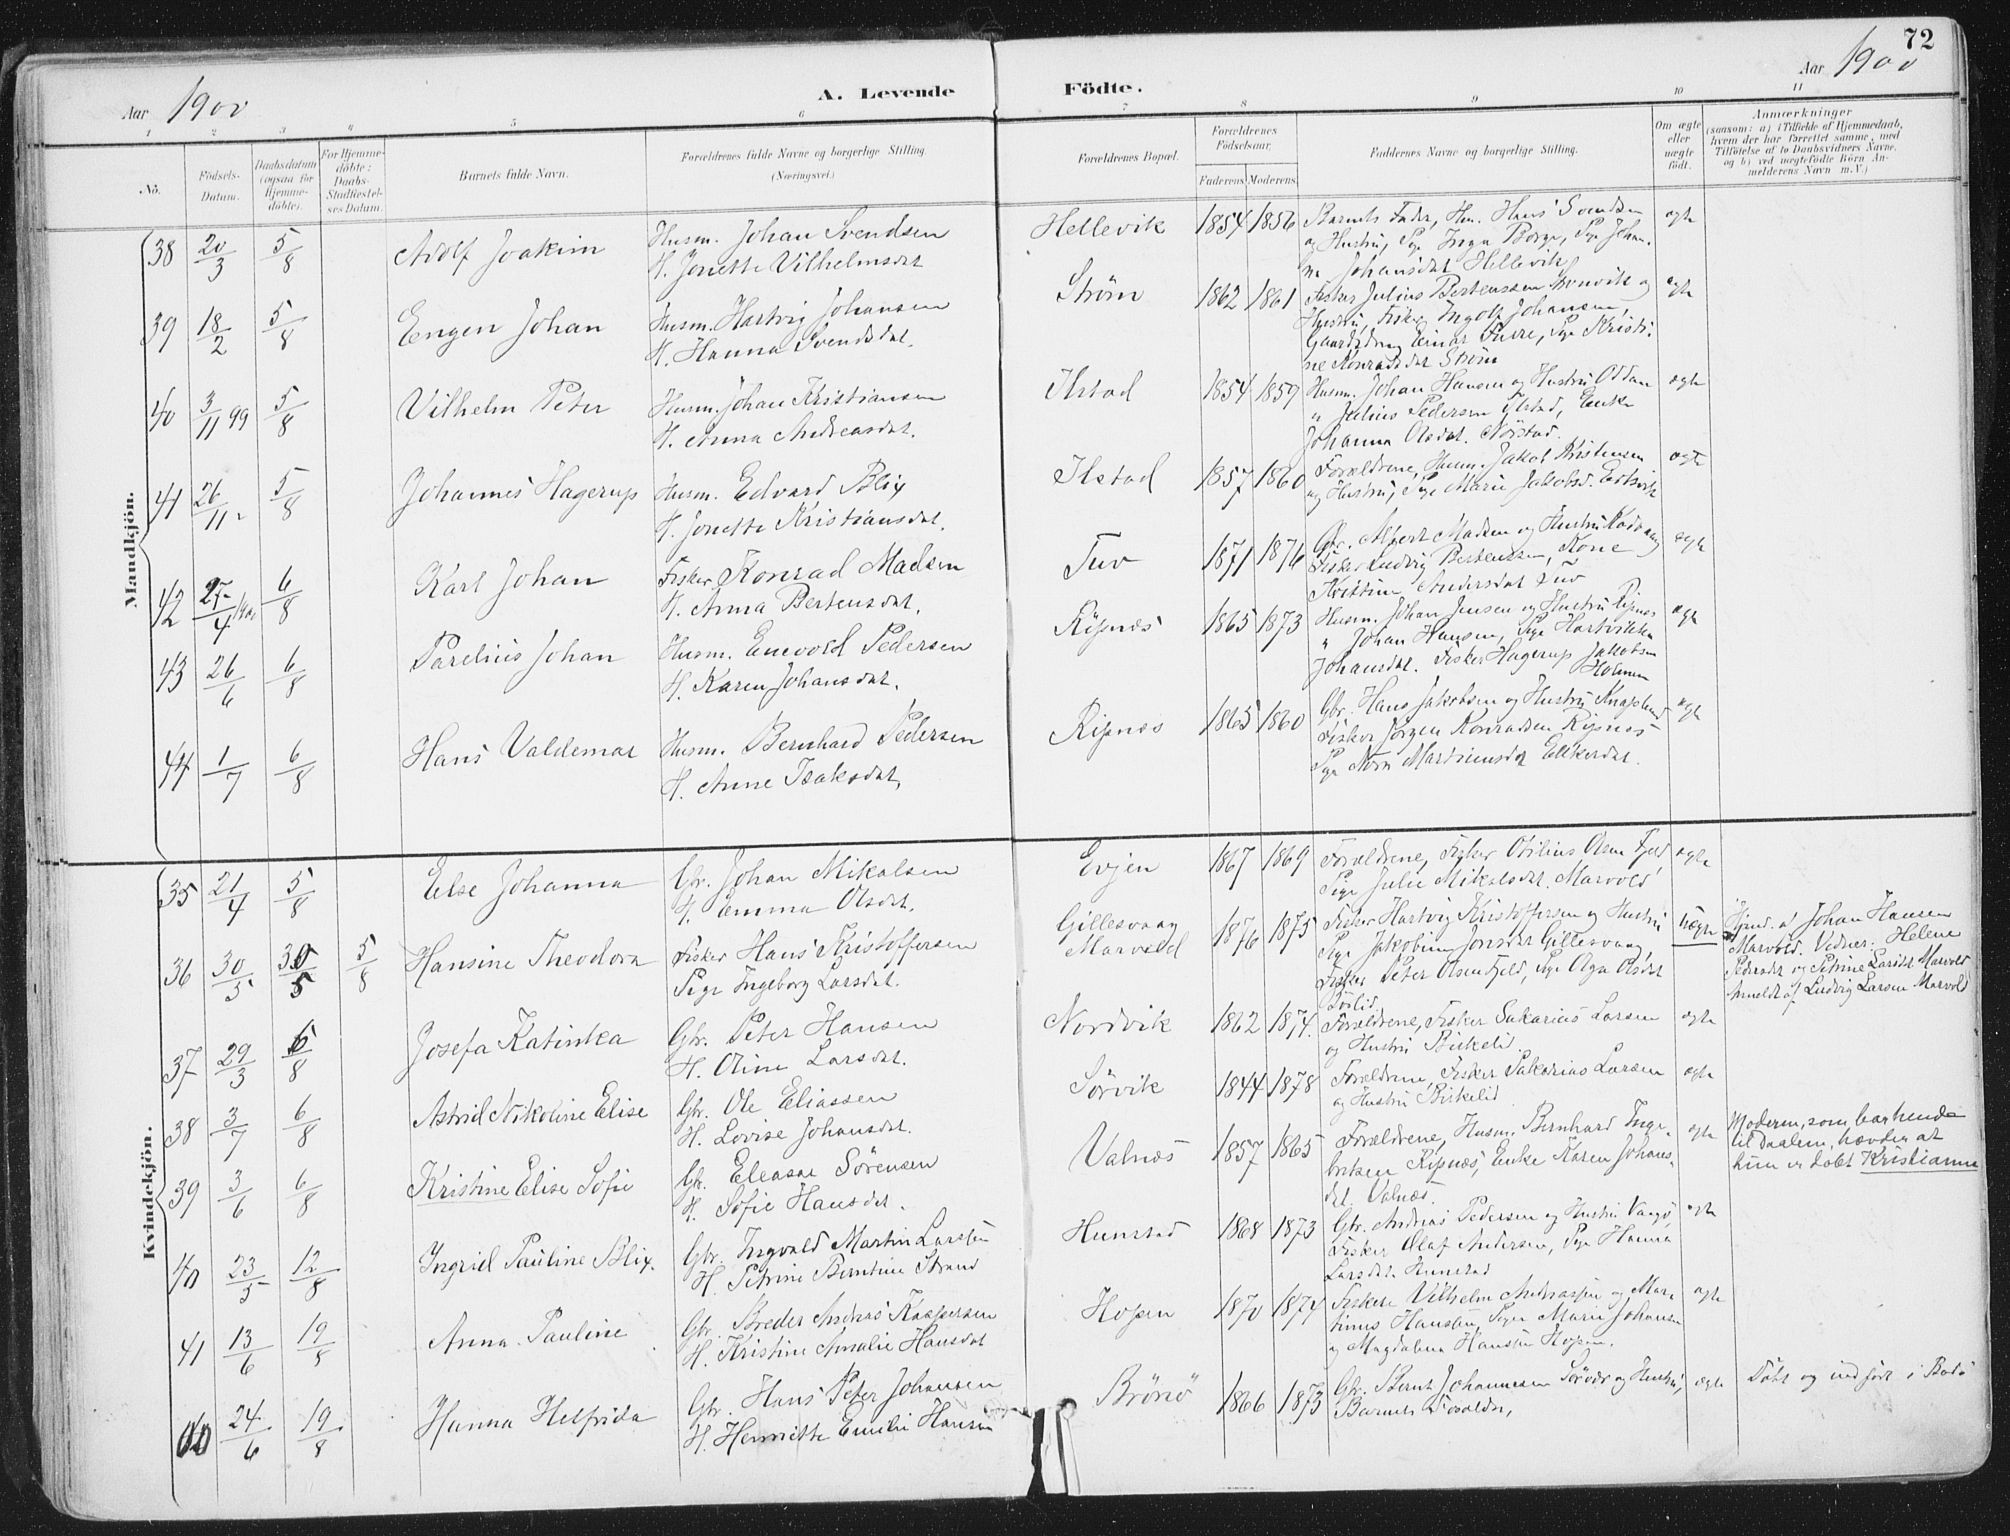 72
Aar 1900
A. Levende
Födte.
Aar 1900
1 2 3 4 5 6 7 8 9 10 11
No.
Födsels-Datum.
Daabsdatum (ogsaa for Hjemme-döbte).
For Hjemme-döbte: Daabs-Stadfæstel-ses Datum.
Barnets fulde Navn.
Forældrenes fulde Navne og borgerlige Stilling.
(Næringsvei.)
Forældrenes Bopæl.
Forældrenes Födselsaar.
Faderens Moderens
Faddernes Navne og borgerlige Stilling.
Om ægte eller uægte födt.
Anmærkninger
(saasom: a) i Tilfælde af Hjemmedaab, hvem der har forrettet samme, med Tilföielse af to Daabsvidners Navne, og b) ved uægtefödte Börn An-melderens Navn m.V.)
Mandkjön.
38 20/3 5/8 Adolf Joakim
Husm. Johan Svendsen
H. Jonette Vilhelmsdat
Hellevik 1854 1856
Barnets Fader, Hm. Hans Svendsen
og Hustru, Pige Inga Borge, Pige Johan-
ne Johansdat Hellevik
ægte
39 18/2 5/8 Eugen Johan
Husm. Hartvig Johansen
H. Hanna Svendsdat.
Strøm 1862 1861
Fisker Julius Bertenssen og
Hustru, Fisker Ingolf Johansen,
Gaardsdreng Einar Furre, Pige Kristi-
ne Konradsdat Strøm
ægte
40 3/11 99 5/8 Vilhelm Peter
Husm. Johan Kristiansen
H. Anna Andreasdat.
Ilstad 1854 1859
Husm. Johan Hansen og Hustru Oddan
" Julius Pedersen Ilstad, Enke
Johanna Olsdat. Nøstad.
ægte
41 26/11 5/8 Johannes Hagerup
Husm. Edvard Blix
H. Jonette Kristiansdat.
Ilstad 1857 1860
Forældrene, Husm. Jakob Kristensen
og Hustru, Pige Marie Jakobsd.
ægte
42 25/4 1900 6/8 Karl Johan
Fisker Konrad Madsen
H. Anna Bertensdat.
Tuv 1871 1876
Gbr. Albert Madsen og Hustru
Fisker Ludvig Bertenssen, Kone
Kristine Andersdat Tuv
ægte
43 26/6 6/8 Parelius Johan
Husm. Enevold Pedersen
H. Karen Johansdat.
Ripnæs 1865 1873
Husm. Johan Jensen og Hustru Ripnæs
" Johan Hansen, Pige Hartvikka
Johansdat. Fisker Hagerup Jakobsen
Holmen
ægte
44 1/7 6/8 Hans Valdemar
Husm. Bernhard Pedersen
H. Anne Isaksdat,
Ripnæs 1865 1860
Gbr. Hans Jakobsen og Hustru Knaplund
Fisker Jørgen Konradsen Ripnæs
Pige Nora Martinusdat
ægte
Kvindekjön.
35 21/4 5/8 Else Johanna
Gbr. Johan Mikalsen
H. Emma Olsdat.
Evjen 1867 1869
Forældrene, Fisker Otilius Olsen Fjeld
Pige Julie Mikalsdat. Marvold
ægte
36 30/5 30/5 5/8 Hansine Theodora
Fisker Hans Kristoffersen
Pige Ingeborg Larsdat.
Gillesvaag
Marvold
1876 1875
Fisker Hartvig Kristoffersen og Hustru
Pige Jakobine Jonsdat Gillesvaag,
Fisker Peter Olsen Fjeld, Pige Olga Olsdat
uægte
Hjmd. af Johan Hansen
Marvold. Vidner: Helene
Pedersdat og Petrine Larsdat Marvold
Anmeldt af Ludvig Larsen Marvold
37 29/3 6/8 Josefa Katinka
Gbr. Peter Hansen
H. Oline Larsdat.
Nordvik 1862 1874.
Forældrene, Fisker Sakarias Larsen
og Hustru Birkelid.
ægte
38 3/7 6/8 Astrid Nikoline Elise
Gbr. Ole Eliassen
H. Lovise Johansdat.
Sørvik 1844 1878
Forældrene, Fisker Sakarias Larsen
og Hustru Birkelid
ægte
39 3/6 6/8 Kristine Elise Sofie
Gbr. Eleasar Sørensen
H. Sofie Hansdat.
Valnæs 1857 1865
Forældrene, Husm. Bernhard Inge-
briksen Ripnæs, Enke Karen Johans-
dat. Valnæs.
ægte
Moderen, som bar hende
til Daaben, hævder at
hun er døbt Kristianna
40 23/5 12/8 Ingrid Pauline Blix.
Gbr. Ingvald Martin Larssen
H. Petrine Berntine Strand
Hunstad 1868 1873
Gbr. Andreas Pedersen og Hustru Vaagø
Fisker Olaf Andersen, Pige Hanna
Larsdat. Hunstad
ægte
41 13/6 19/8 Anna Pauline
Gbr. Breder Andreas Kaspersen
H. Kristine Amalie Hansdat
Hopen 1870 1874
Fiskere Vilhelm Andreassen og Mar-
tinus Hanssen, Piger Marie Johansen
og Magdalena Hanssen Hopen.
ægte
24/6 19/8 Hanna Helfrida
Gbr. Hans Peter Johansen
H. Henriette Emilie Hansen
Brønø 1866 1873
Gbr. Bernt Johannesen Sørvær og Hustru,
Barnets Forældre,
ægte
Døbt og indført i Bodø